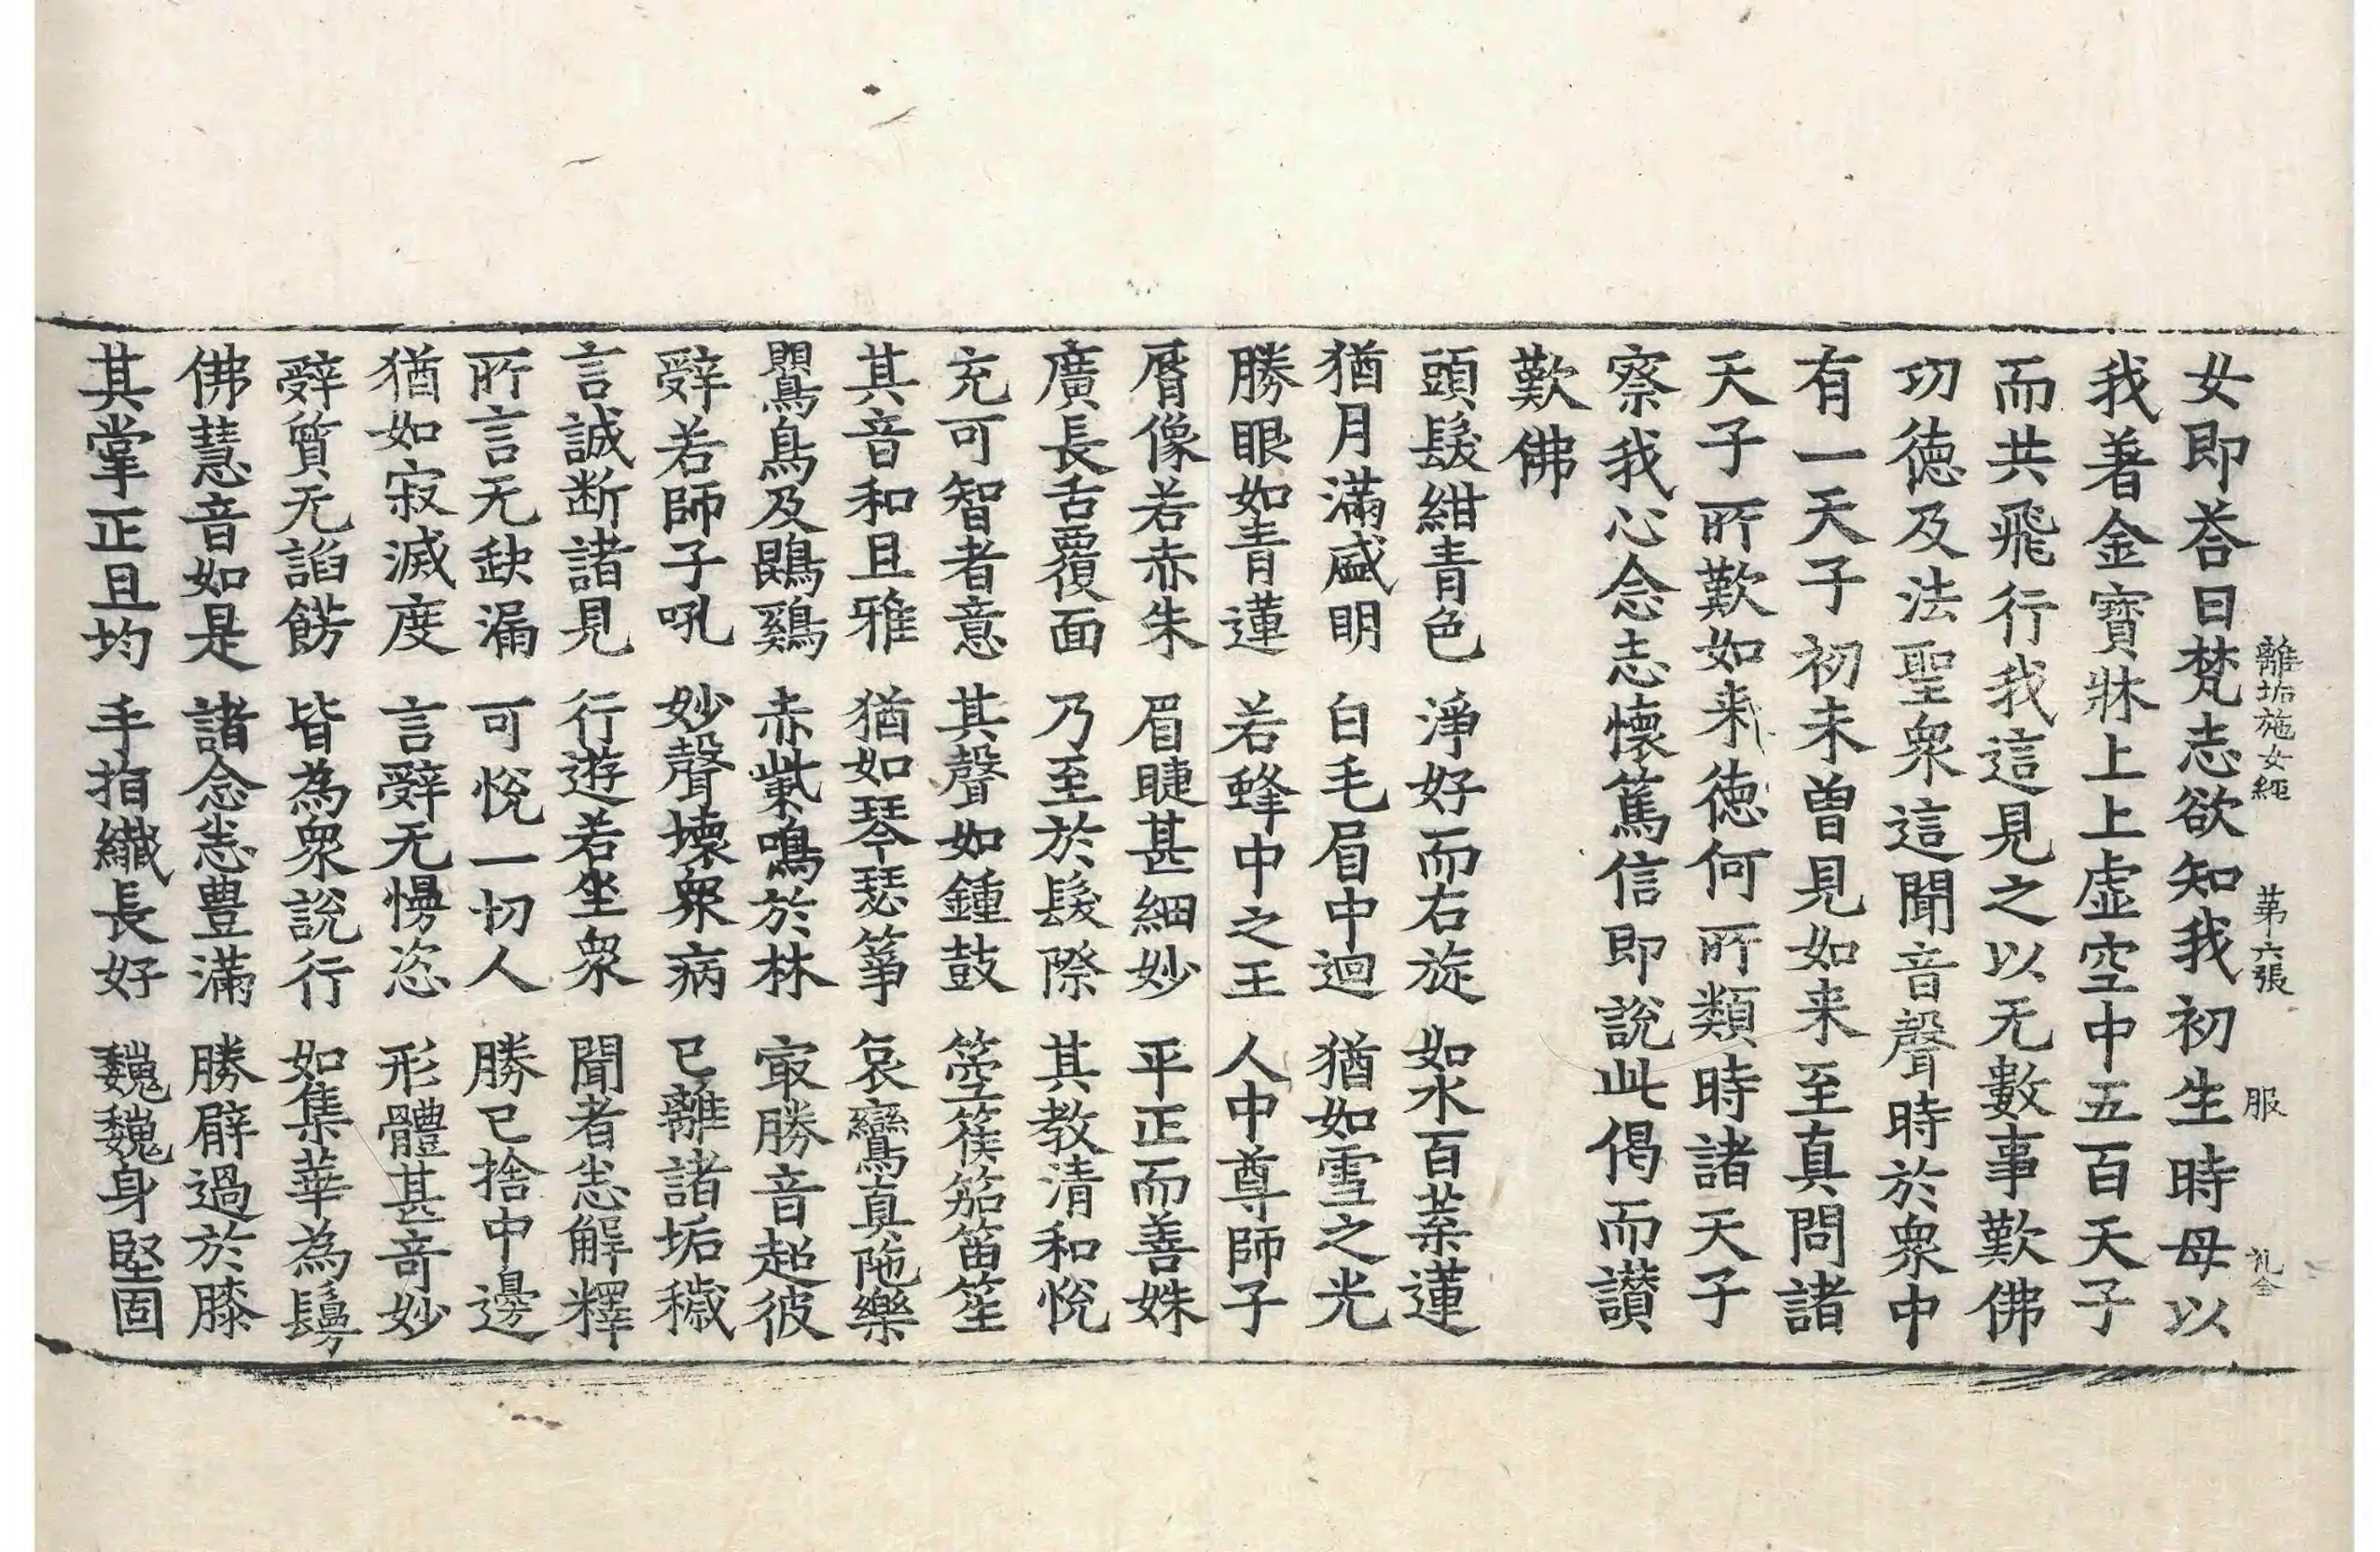 離垢施女經 第六張 服 礼全
女即荅曰梵志欲知我初生時母以
我著金寶牀上上虛空中五百天子
而共飛行我這見之以无數事歎佛
功德及法聖衆這聞音聲時於衆中
有一天子初未曾見如来至真問諸
天子所歎如来德何所類時諸天子
察我心念志懷篤信即說此偈而讃
歎佛
頭髮紺青色 淨好而右旋 如水百葉蓮
猶月滿盛明 白毛眉中迴 猶如雪之光
勝眼如青蓮 若蜂中之王 人中尊師子
脣像若赤朱 眉睫甚細妙 平正而善姝
廣長舌覆面 乃至於髮際 其教清和悅
充可智者意 其聲如鍾鼓 箜篌笳笛笙
其音和且雅 猶如琴瑟箏 哀鸞真陁樂
鸎鳥及鶡鷄 赤㭰鳴於林 㝡勝音超彼
辝若師子吼 妙聲壞衆病 已離諸垢穢
言誠断諸見 行遊若坐衆 聞者悉解釋
所言无缺漏 可悅一切人 勝已捨中邊
猶如寂滅度 言辝无慢恣 形體甚奇妙
辝質无諂餝 皆為衆說行 如集華為鬘
佛慧音如是 諸念悉豊滿 勝臂過於膝
其掌正且均 手指纖長好 巍巍身堅固